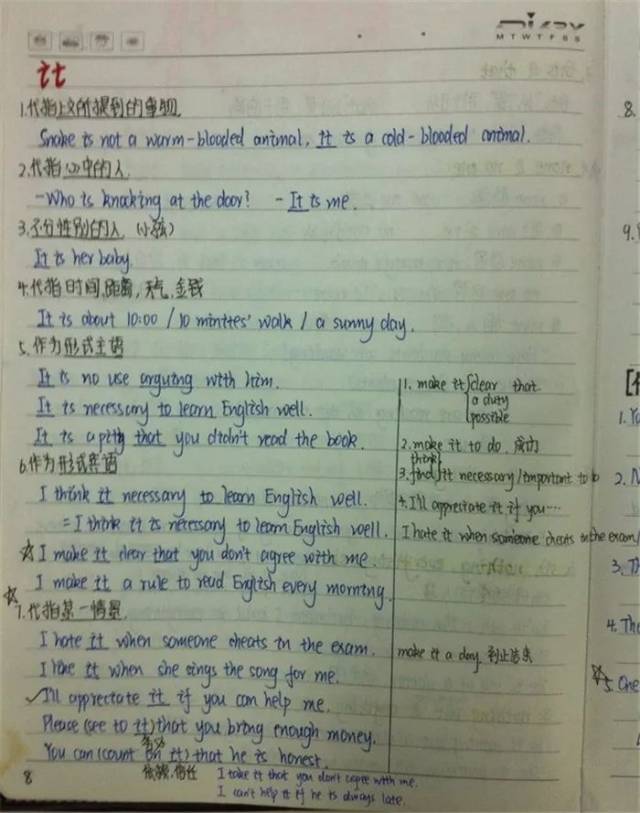 MTWTFSS
it
1.代指上文所提到的事物
Snake is not a warm-blooded animal, It is a cold-blooded animal.
2.代指心中的人
-Who is knocking at the door? -It is me.
3.不分性别的人 (小孩)
It is her baby.
4.代指时间,距离,天气,金钱
It is about 10:00 / 10 minites' walk / a sunny day.
5.作为形式主语
It is no use arguing with him.
It is necessary to learn English well.
It is a pity that you didn't read the book.
6.作为形式宾语
I think it necessary to learn English well.
=I think it is necessary to learn English well.
☆I make it clear that you don't agree with me.
I make it a rule to read English every morning.
☆7.代指某一情景
I hate it when someone cheats in the exam.
I like it when she sings the song for me.
✓I'll appreciate it if you can help me.
Please (see to it) that you bring enough money.
务必
You can (count on it) that he is honest.
依赖,信任
I take it that you don't agree with me.
I can't help it if he is always late.
1. make it clear that
a duty
possible
2. make it to do 成功
think
3. find it necessary/important to
4. I'll appreciate it if you…
I hate it when someone cheats in the exam
make it a day 到此结束
8
8.
9.
1. Yo
2. N
3. Th
4. The
☆5. One